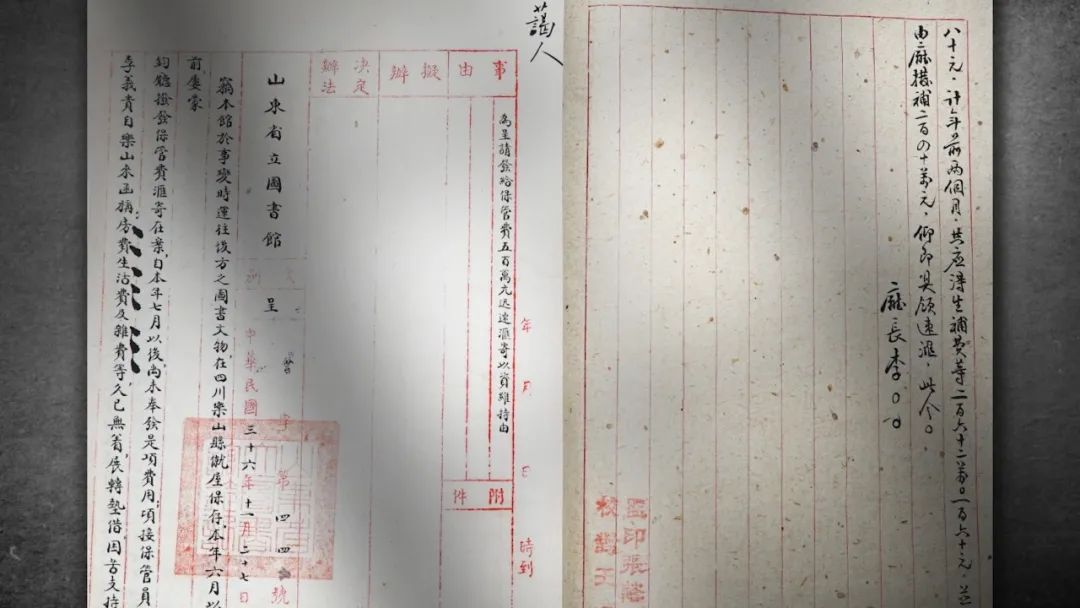 八十元。計年前两個月。共应淂生補費等二百六十二萬〇一百六十元。
由廳撥補二百四十萬元。仰即具領速滙。此令。
廳長李〇〇
監印張
校對王
年 月 日 時到
事由
擬辦
決定辦法
附件
為呈請發給保管費五百萬元迅速滙寄以資維持由
山東省立圖書館
呈
字第四四號
中華民國三十六年十一月二十七日
竊本館於事變時運往後方之圖書文物，在四川樂山縣僦屋保存，本年六月以
前屢蒙
鈞廳撥發保管費滙寄在案，自本年七月以後尚未奉發是項費用；頃接保管員
李義貴自樂山來函稱房費生活費及雜費等久已無着，展轉墊借困苦支持